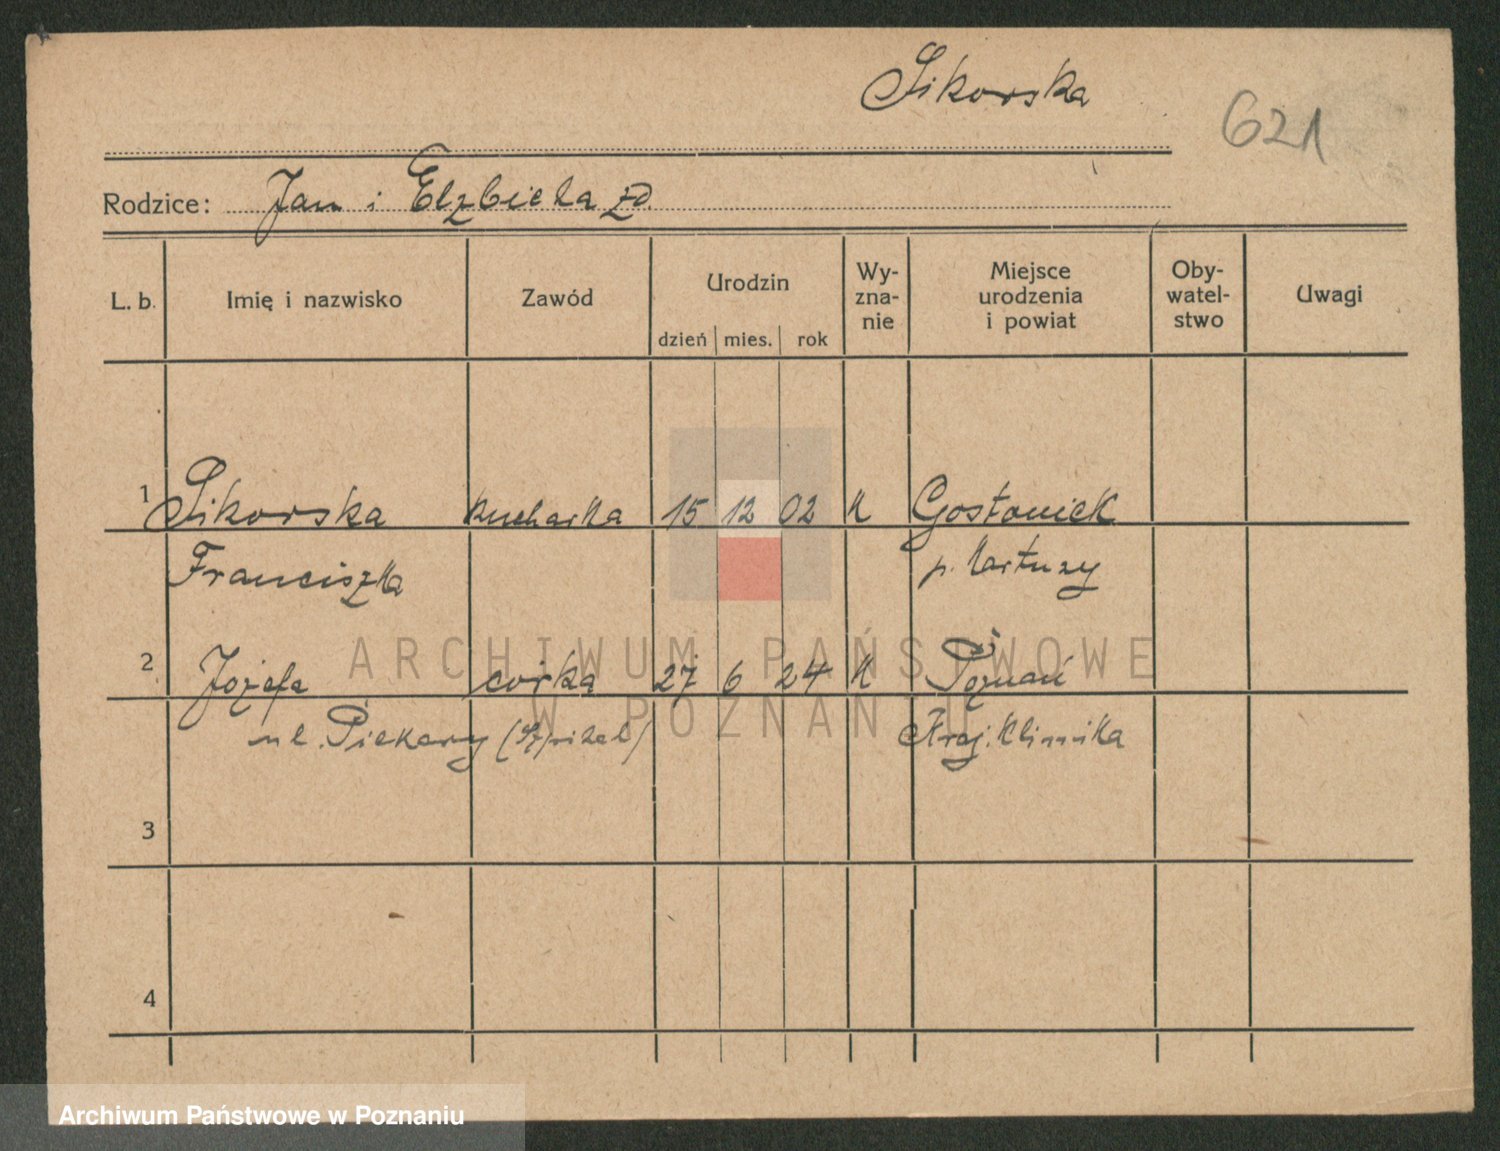 Sikorska
621
Rodzice: Jan i Elzbieta zd.
L. b. Imię i nazwisko Zawód Urodzin dzień mies. rok Wy-zna-nie Miejsce urodzenia i powiat Oby-watel-stwo Uwagi
1 Sikorska kucharka 15 12 02 K Gostomek
Franciszka p. Kartuzy
2 Józefa córka 27 6 24 K Poznań
ul. Piekary (Szpital) Kraj. Klinika
3
4
ARCHIWUM PAŃSTWOWE
W POZNANIU
Archiwum Państwowe w Poznaniu